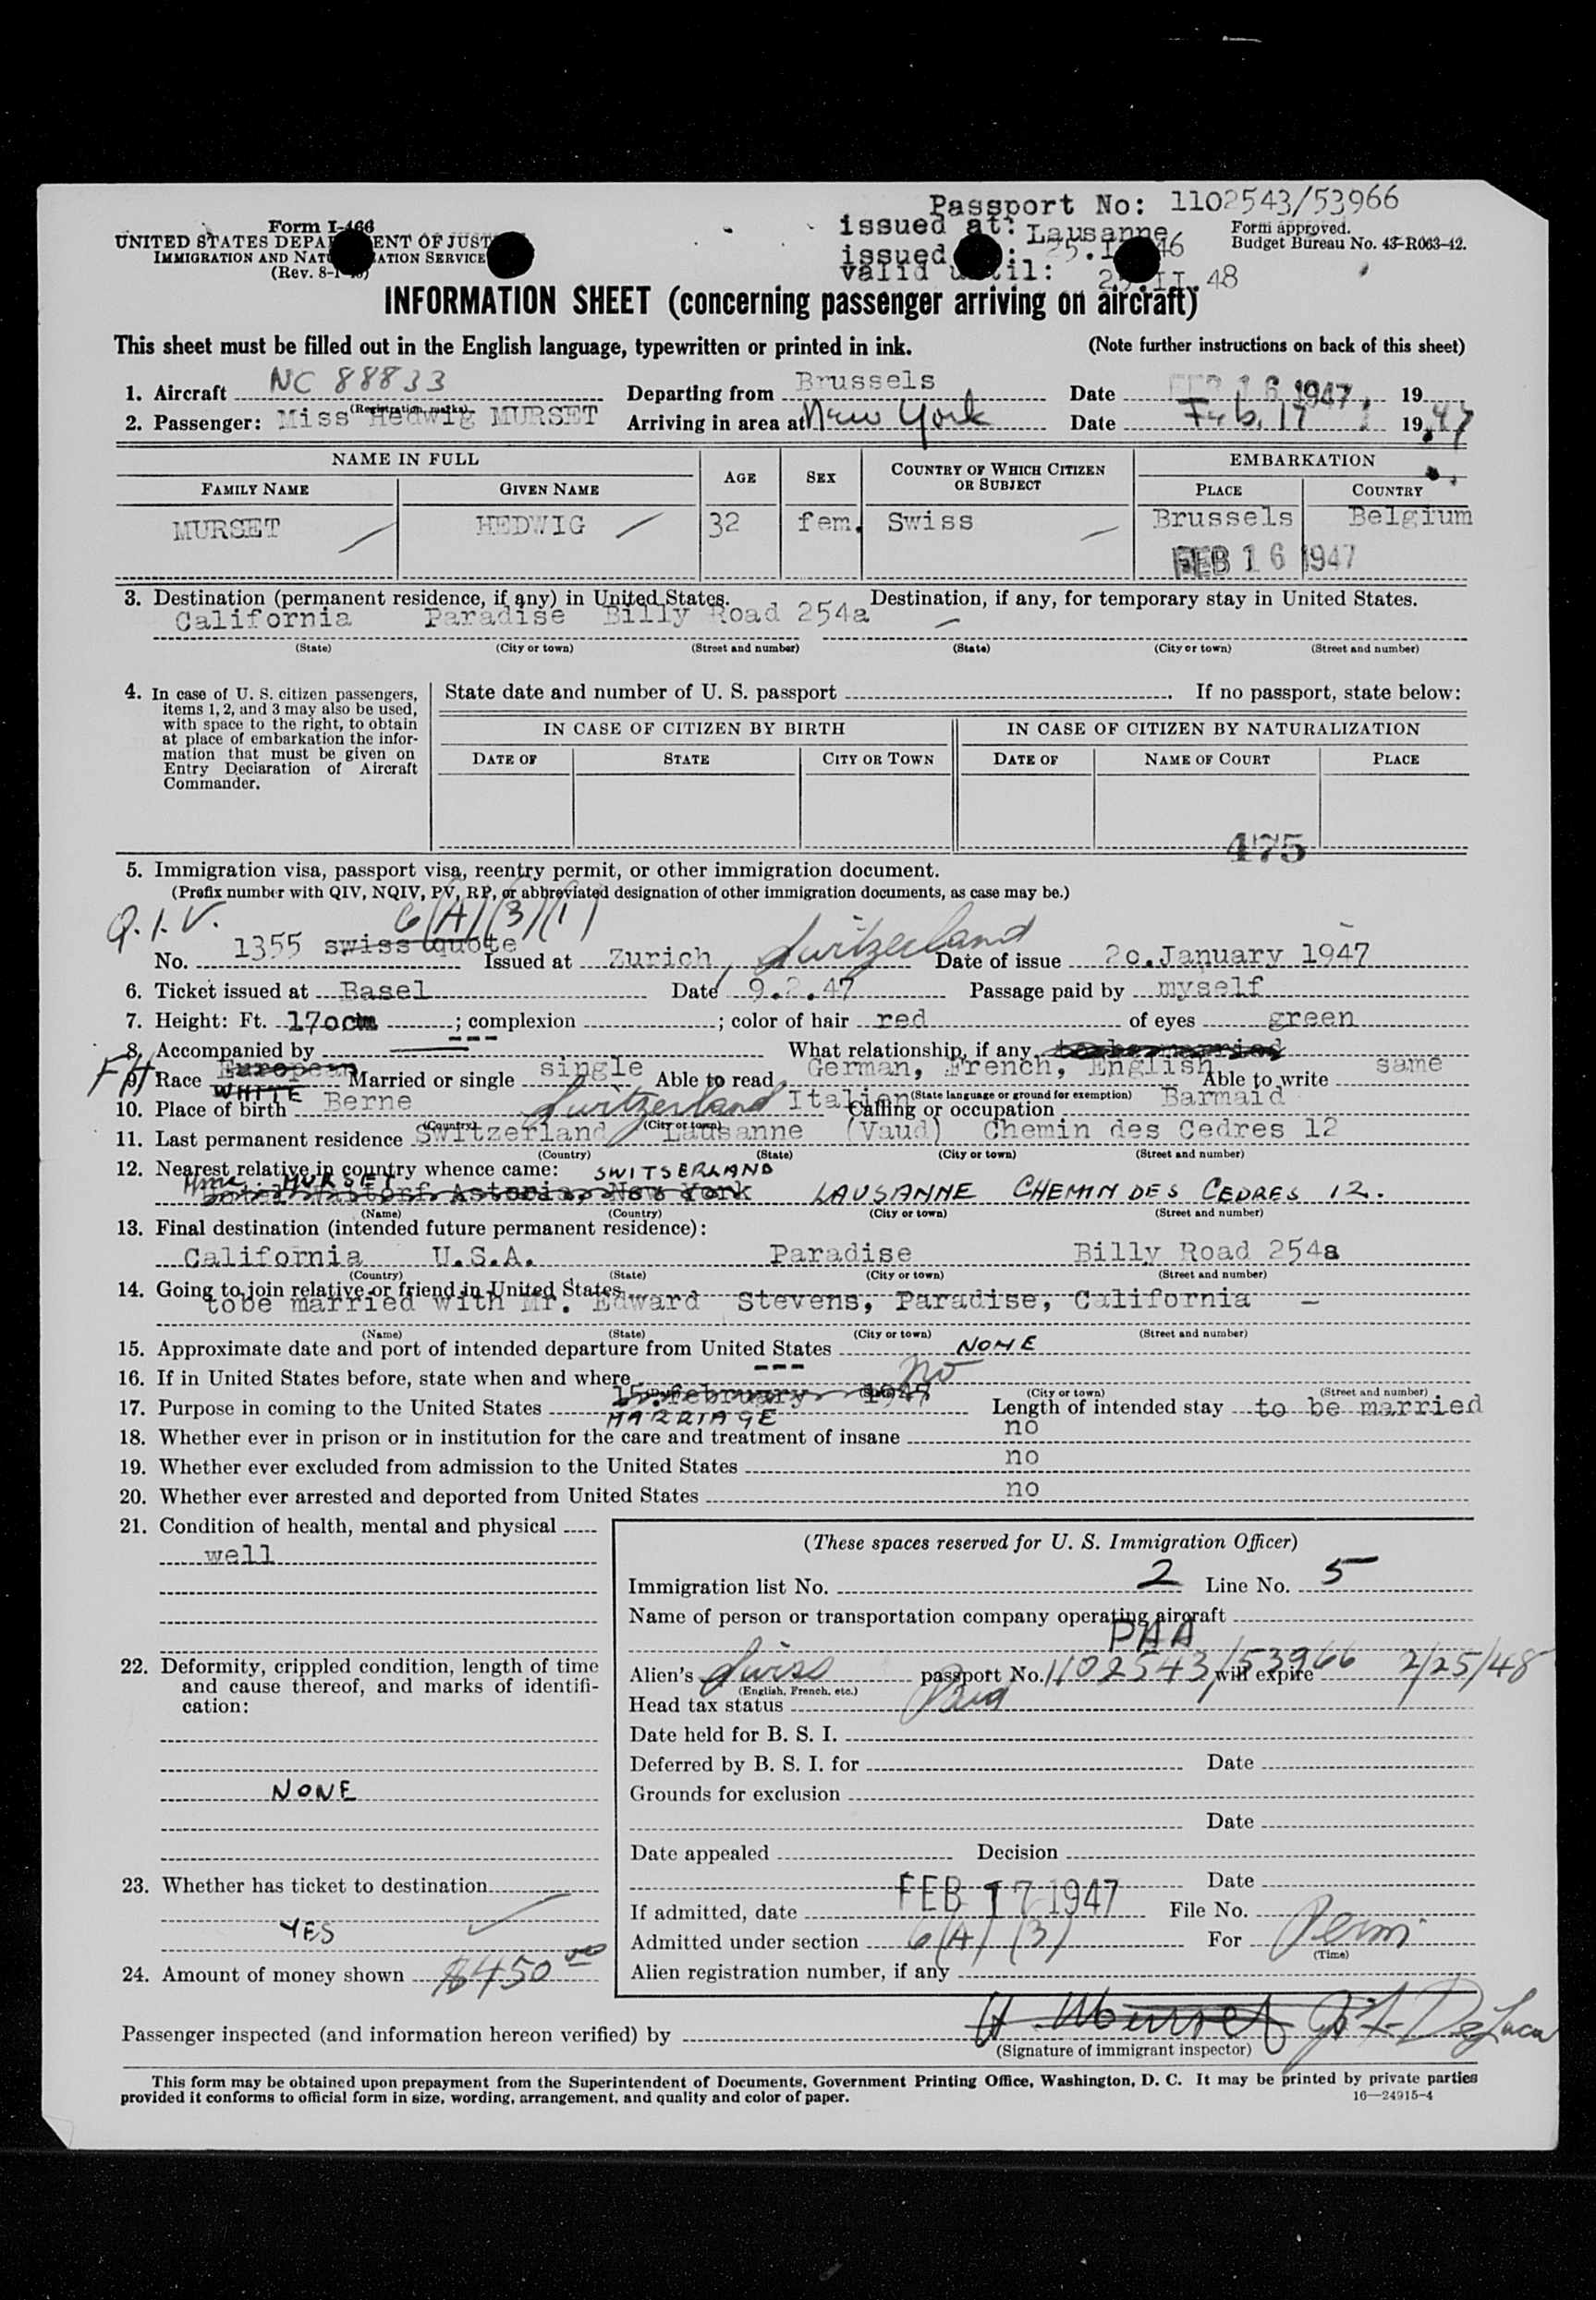 Passport No: 1102543/53966
Form I-466
issued at: Lausanne
Form approved.
UNITED STATES DEPARTMENT OF JUSTICE
Budget Bureau No. 43-R063-42.
IMMIGRATION AND NATURALIZATION SERVICE
issued
46
(Rev. 8-1-45)
valid until:
48
INFORMATION SHEET (concerning passenger arriving on aircraft)
This sheet must be filled out in the English language, typewritten or printed in ink. (Note further instructions on back of this sheet)
1. Aircraft NC 88833 Departing from Brussels Date FEB 16 1947, 19
(Registration marks)
2. Passenger: Miss Hedwig MURSET Arriving in area at New York Date Feb. 17 1947
NAME IN FULL AGE SEX COUNTRY OF WHICH CITIZEN OR SUBJECT EMBARKATION
FAMILY NAME GIVEN NAME PLACE COUNTRY
MURSET HEDWIG 32 fem. Swiss Brussels Belgium
FEB 16 1947
3. Destination (permanent residence, if any) in United States. Destination, if any, for temporary stay in United States.
California Paradise Billy Road 254a —
(State) (City or town) (Street and number) (State) (City or town) (Street and number)
4. In case of U. S. citizen passengers, items 1, 2, and 3 may also be used, with space to the right, to obtain at place of embarkation the information that must be given on Entry Declaration of Aircraft Commander.
State date and number of U. S. passport . If no passport, state below:
IN CASE OF CITIZEN BY BIRTH IN CASE OF CITIZEN BY NATURALIZATION
DATE OF STATE CITY OR TOWN DATE OF NAME OF COURT PLACE
475
5. Immigration visa, passport visa, reentry permit, or other immigration document.
(Prefix number with QIV, NQIV, PV, RP, or abbreviated designation of other immigration documents, as case may be.)
Q.I.V. 6(A)(3)(1)
No. 1355 swiss quote Issued at Zurich, Switzerland Date of issue 20.January 1947
6. Ticket issued at Basel Date 9.2.47 Passage paid by myself
7. Height: Ft. 170cm ; complexion --- ; color of hair red of eyes green
8. Accompanied by What relationship, if any to be married
FH
9. Race European WHITE Married or single single Able to read German, French, English Italien Able to write same
(State language or ground for exemption)
10. Place of birth Berne Switzerland Calling or occupation Barmaid
(Country) (City or town)
11. Last permanent residence Switzerland Lausanne (Vaud) Chemin des Cedres 12
(Country) (State) (City or town) (Street and number)
12. Nearest relative in country whence came: SWITSERLAND
Mme. MURSET
Hotel Waldorf Astoria, New York LAUSANNE CHEMIN DES CEDRES 12.
(Name) (Country) (City or town) (Street and number)
13. Final destination (intended future permanent residence):
California U.S.A. Paradise Billy Road 254a
(Country) (State) (City or town) (Street and number)
14. Going to join relative or friend in United States
tobe married with Mr. Edward Stevens, Paradise, California -
(Name) (State) (City or town) (Street and number)
15. Approximate date and port of intended departure from United States NONE
16. If in United States before, state when and where --- no
(City or town) (Street and number)
15. february 1947
17. Purpose in coming to the United States MARRIAGE Length of intended stay to be married
18. Whether ever in prison or in institution for the care and treatment of insane no
19. Whether ever excluded from admission to the United States no
20. Whether ever arrested and deported from United States no
21. Condition of health, mental and physical
well
22. Deformity, crippled condition, length of time and cause thereof, and marks of identification:
NONE
23. Whether has ticket to destination
YES
24. Amount of money shown $450 00
(These spaces reserved for U. S. Immigration Officer)
Immigration list No. 2 Line No. 5
Name of person or transportation company operating aircraft
PAA
Alien's Swiss passport No. 1102543/53966 will expire 2/25/48
(English, French, etc.)
Head tax status Paid
Date held for B. S. I.
Deferred by B. S. I. for Date
Grounds for exclusion
Date
Date appealed Decision
Date
If admitted, date FEB 17 1947 File No.
Admitted under section 6(A)(3) For Perm.
(Time)
Alien registration number, if any
Passenger inspected (and information hereon verified) by H. Murset J. F. DeLuca
(Signature of immigrant inspector)
This form may be obtained upon prepayment from the Superintendent of Documents, Government Printing Office, Washington, D. C. It may be printed by private parties
provided it conforms to official form in size, wording, arrangement, and quality and color of paper. 16—24915-4